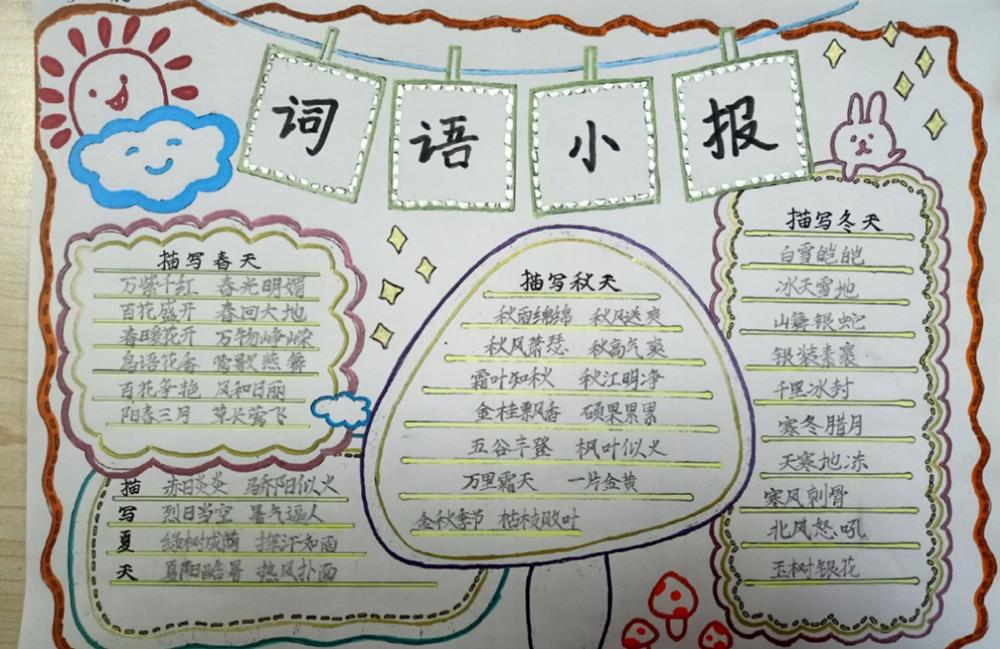 词语小报
描写春天
万紫千红 春光明媚
百花盛开 春回大地
春暖花开 万物峥嵘
鸟语花香 莺歌燕舞
百花争艳 风和日丽
阳春三月 草长莺飞
描写夏天
赤日炎炎 骄阳似火
烈日当空 暑气逼人
绿树成荫 挥汗如雨
夏阳酷暑 热风扑面
描写秋天
秋雨绵绵 秋风送爽
秋风萧瑟 秋高气爽
霜叶知秋 秋江明净
金桂飘香 硕果累累
五谷丰登 枫叶似火
万里霜天 一片金黄
金秋季节 枯枝败叶
描写冬天
白雪皑皑
冰天雪地
山舞银蛇
银装素裹
千里冰封
寒冬腊月
天寒地冻
寒风刺骨
北风怒吼
玉树银花